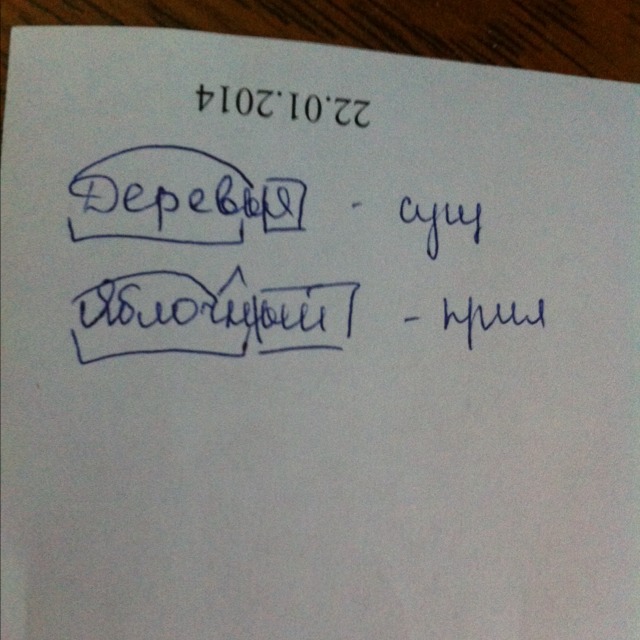 22.01.2014
Деревья - сущ
Яблочный - прил